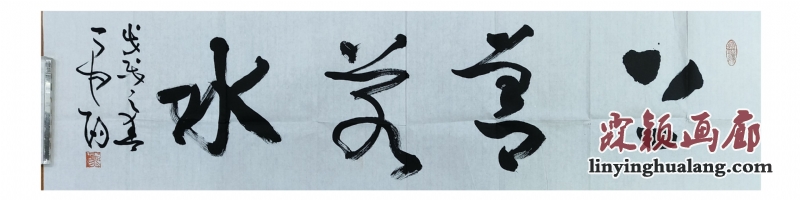 上善若水
戊戌之春
霖颖画廊
linyinghualang.com